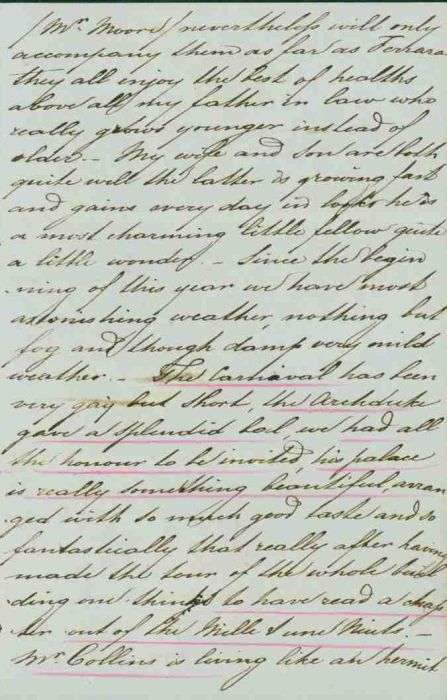 /Mr. Moore/ nevertheless will only
accompany them as far as Ferrara
they all enjoy the best of healths
above all my father in law who
really grows younger instead of
older. - My wife and son are both
quite well the latter is growing fast
and gains every day in looks he is
a most charming little fellow quite
a little wonder. - Since the begin
ning of this year we have most
astonishing weather, nothing but
fog and though damp very mild
weather. - The Carnaval has been
very gay but short, the Archduke
gave a splendid bal, we had all
the honour to be invited, his palace
is really something beautiful, arran
ged with so much good taste and so
fantastically that really after having
made the tour of the whole buil
ding one thinks to have read a chap
ter out of the Mille & une Nuits. -
Mr. Collins is living like an hermit